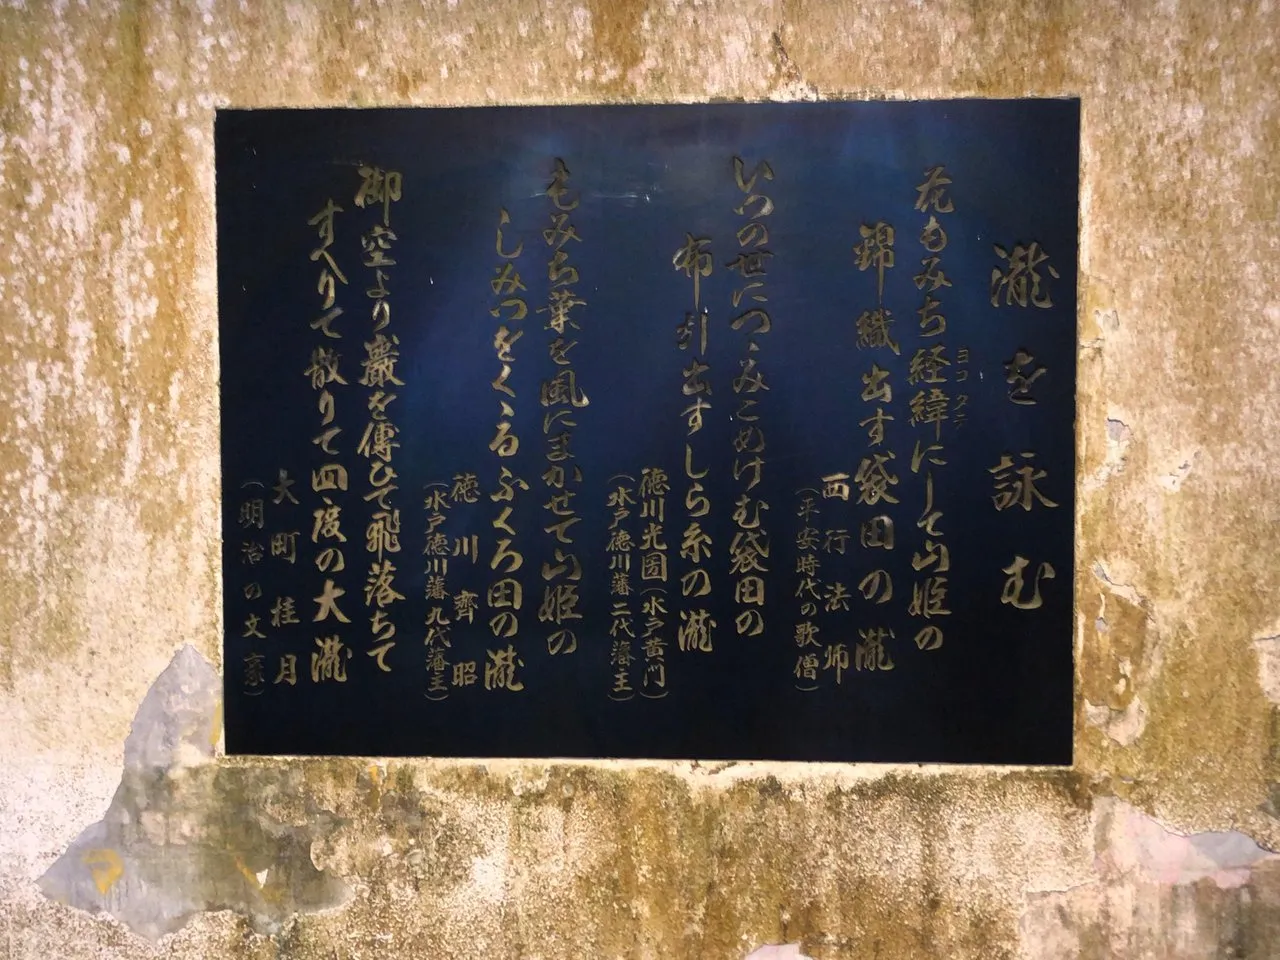 瀧を詠む
花もみち経緯にして山姫の
ヨコ タテ
錦織出す袋田の瀧
西行法師
(平安時代の歌僧)
いつの世につゝみこめけむ袋田の
布引出すしら糸の瀧
徳川光圀(水戸黄門)
(水戸徳川藩二代藩主)
もみち葉を風にまかせて山姫の
しみつをくゝるふくろ田の瀧
徳川齊昭
(水戸徳川藩九代藩主)
御空より巌を傳ひて飛落ちて
すへりて散りて四度の大瀧
大町桂月
(明治の文豪)